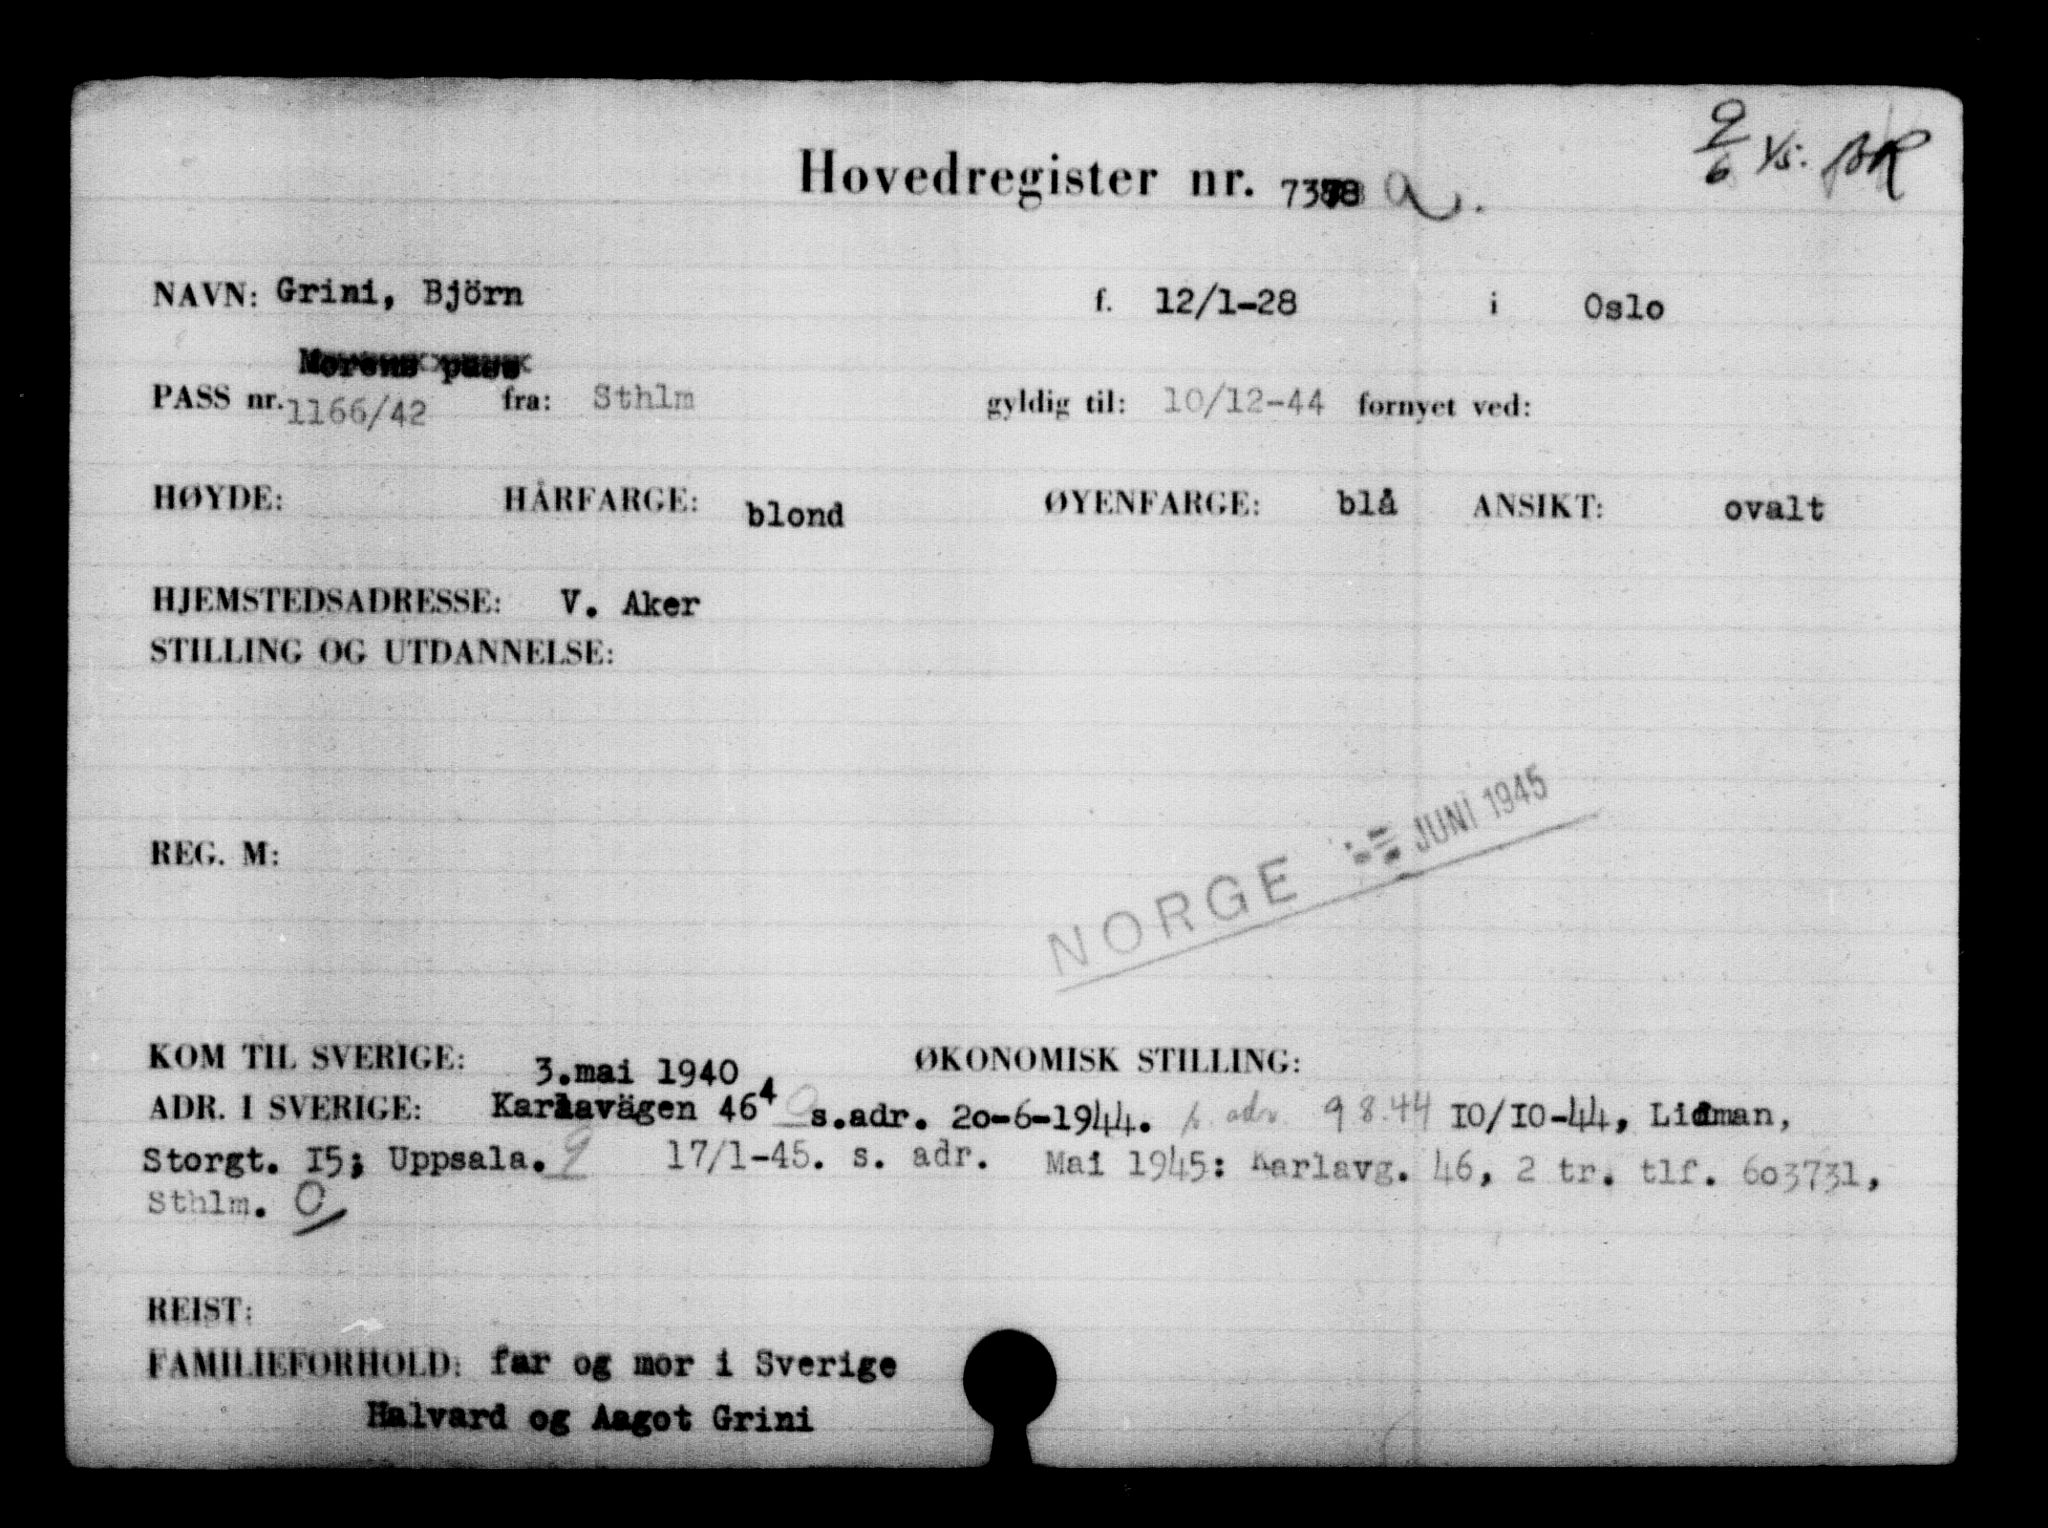 9/6 45. BR
Hovedregister nr. 7378 a.
NAVN: Grini, Björn f. 12/1-28 i Oslo
Morens pass
PASS nr. 1166/42 fra: Sthlm gyldig til: 10/12-44 fornyet ved:
HØYDE: HÅRFARGE: blond ØYENFARGE: blå ANSIKT: ovalt
HJEMSTEDSADRESSE: V. Aker
STILLING OG UTDANNELSE:
NORGE JUNI 1945
REG. M:
KOM TIL SVERIGE: 3.mai 1940 ØKONOMISK STILLING:
ADR. I SVERIGE: Karlavägen 46⁴ s.adr. 20-6-1944. adr 9 8.44 10/10-44, Lidman,
Storgt. 15; Uppsala. 17/1-45. s. adr. Mai 1945: Karlavg. 46, 2 tr. tlf. 603731,
Sthlm.
REIST:
FAMILIEFORHOLD: far og mor i Sverige
Halvard og Aagot Grini